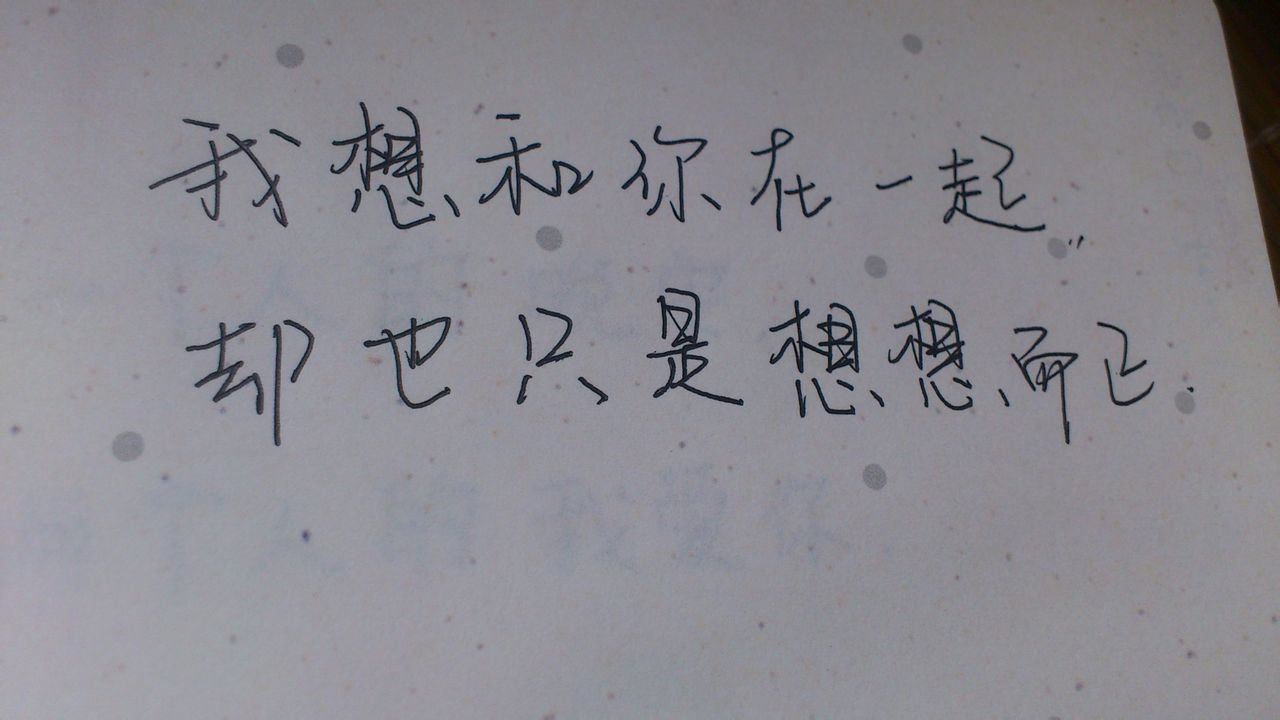 我想和你在一起..
却也只是想想而已.